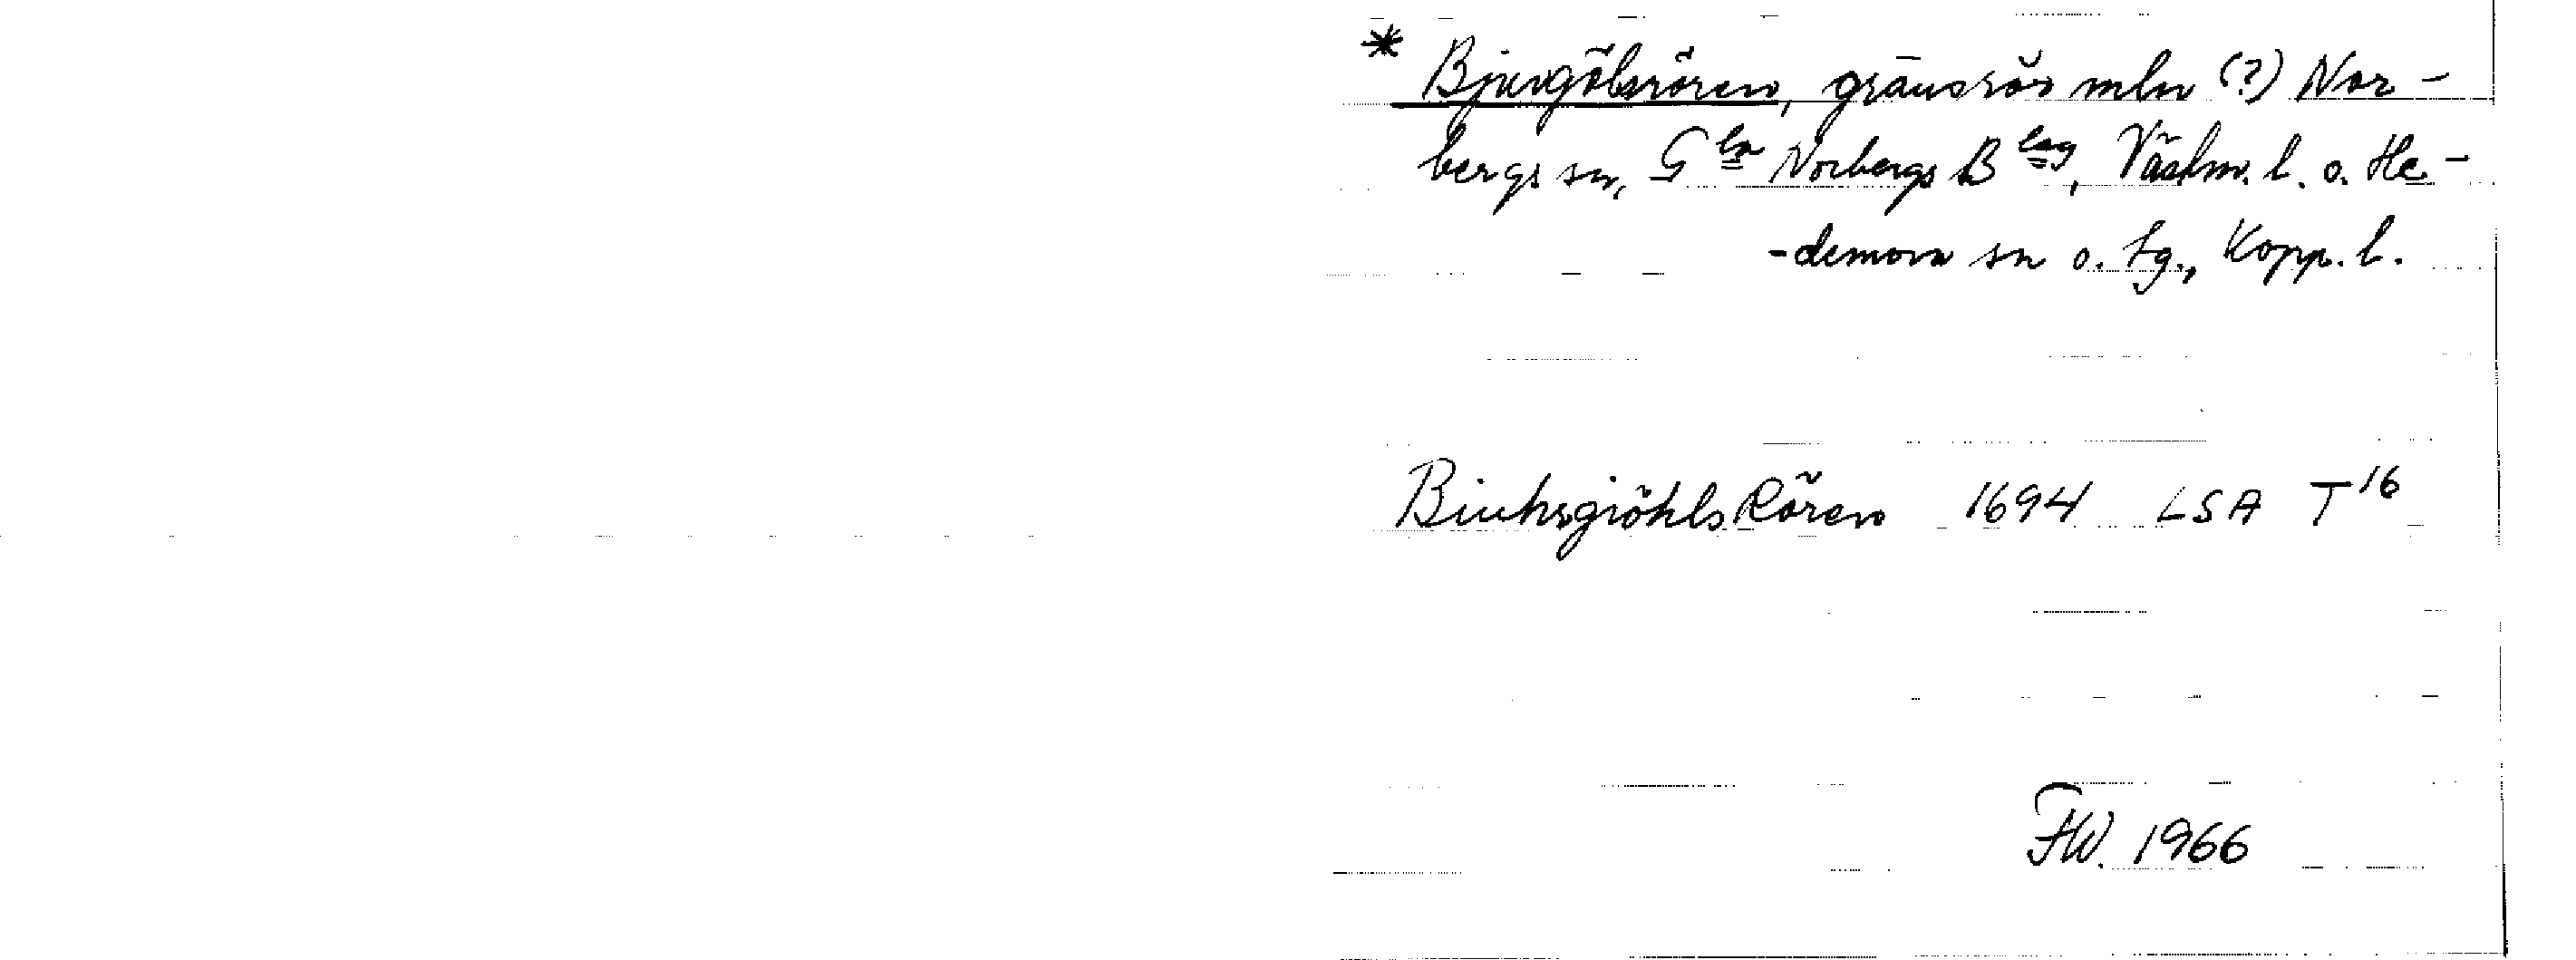 * Bjurgölsrören, gränsrör mln (?) Nor-
bergs sn, Gla Norbergs Blag, Västm. l. o. He-
-demora sn o. tg., Kopp. l.
Biuhrgiöhls Rören 1694 LSA T16
FW. 1966